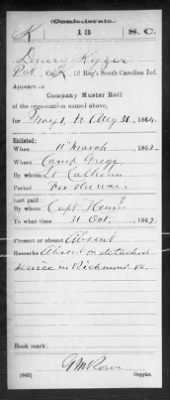 (Confederate.)
K 13 S. C.
Drury Kizzer
Pvt., Co. K, 13 Reg't South Carolina Inf.
Appears on
Company Muster Roll
of the organization named above,
for to Aug 31, 1864.
Enlisted:
When March, 1862.
Where Camp Gregg
By whom Lt Calhoun
Period For the war
Last paid:
By whom Capt
To what time 31 Oct, 1863.
Present or absent Absent
Remarks Absent on detached
service in Richmond Va.
Book mark:
G M Rowe
(642) Copyist.